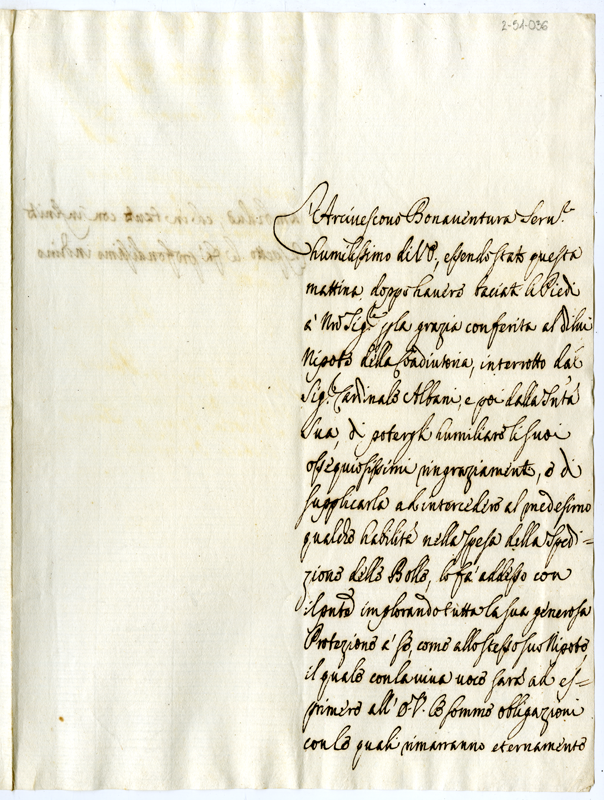 2-51-036
L'Arcivescovo Bonaventura Seru.e
humilissimo di V.E., essendo stato questa
mattina doppo havere baciati li Piedi
à Nro Sig.re p la grazia conferita al di lui
Nipote della Coadiutoria, interrotto dal
Sig.r Cardinale Albani, e poi dalla Sntà
Sua, di potergli humiliare li suoi
ossequiosissimi ringraziamenti, e di
supplicarla ad intercedere al medesimo
qualche habilità nella spesa della Spedi=
zione delle Bolle, lo fà adesso con
implorando tutta la sua generosa
Protezione à se, come allo stesso suo Nipote
il quale con la viva voce sarà ad es=
primere all' E.V. le somme obligazioni
con le quali rimarranno eternamente